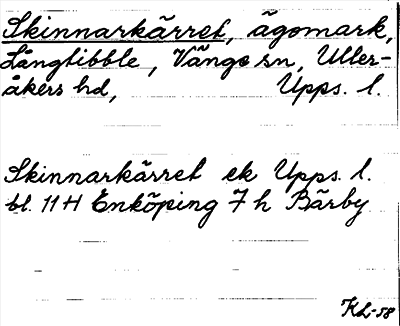 Skinnarkärret, ägomark,
Långtibble, Vänge sn, Uller-
åkers hd, Upps. l.
Skinnarkärret ek Upps. l.
bl. 11 H Enköping 7 h Bärby
KL-58